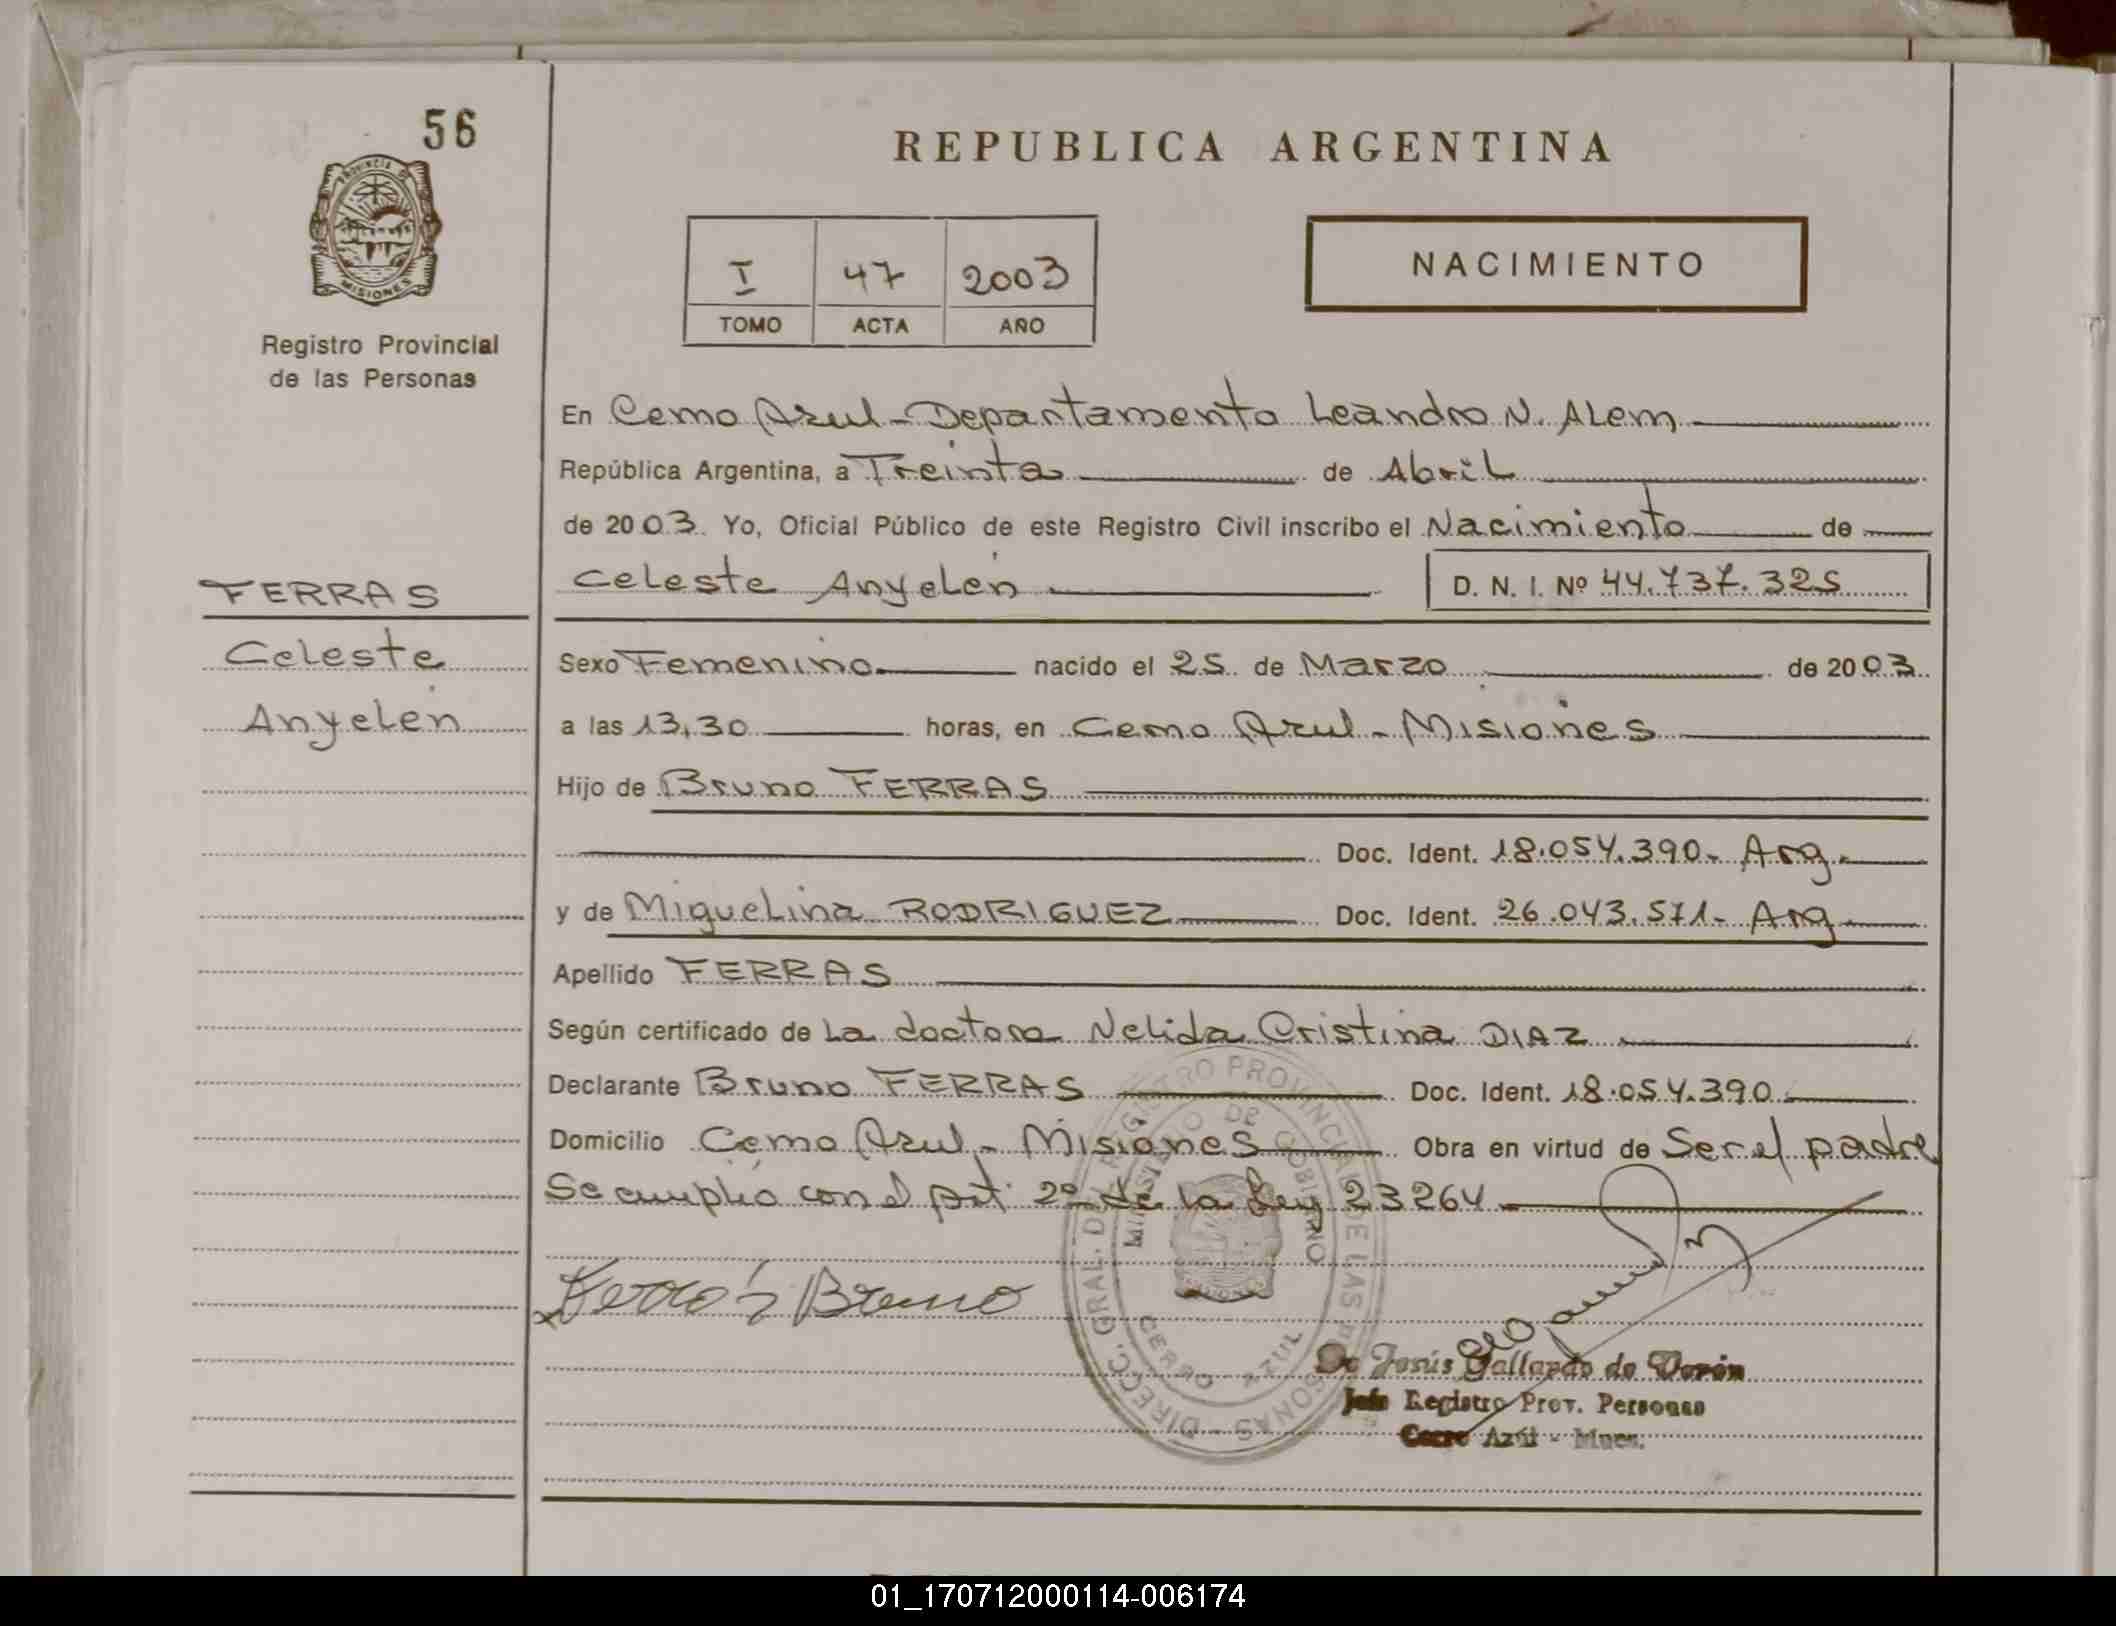 56
PROVINCIA DE
MISIONES
Registro Provincial
de las Personas
FERRAS
Celeste
Anyelén
REPUBLICA ARGENTINA
I 47 2003
TOMO ACTA AÑO
NACIMIENTO
En Cerro Azul - Departamento Leandro N. Alem
República Argentina, a Treinta de Abril
de 2003 Yo, Oficial Público de este Registro Civil inscribo el Nacimiento de
Celeste Anyelén D. N. I. Nº 44.737.325
Sexo Femenino nacido el 25 de Marzo de 2003
a las 13,30 horas, en Cerro Azul - Misiones
Hijo de Bruno FERRAS
Doc. Ident. 18.054.390- Arg.
y de Miguelina RODRIGUEZ Doc. Ident. 26.043.571- Arg
Apellido FERRAS
Según certificado de La doctora Nelida Cristina DIAZ
Declarante Bruno FERRAS Doc. Ident. 18.054.390
Domicilio Cerro Azul - Misiones Obra en virtud de Ser el padre
Se cumplió con el Art. 2º de la Ley 23264
Bruno
DIRECC. GRAL. DEL REGISTRO PROVINCIAL DE LAS PERSONAS
MINISTERIO DE GOBIERNO
CERRO AZUL
De Jesús Gallardo de
Jefe Registro Prov. Personas
Cerro Azul - Mnes.
01_170712000114-006174